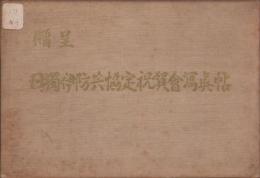 贈呈
日獨伊防共協定祝賀會寫眞帖